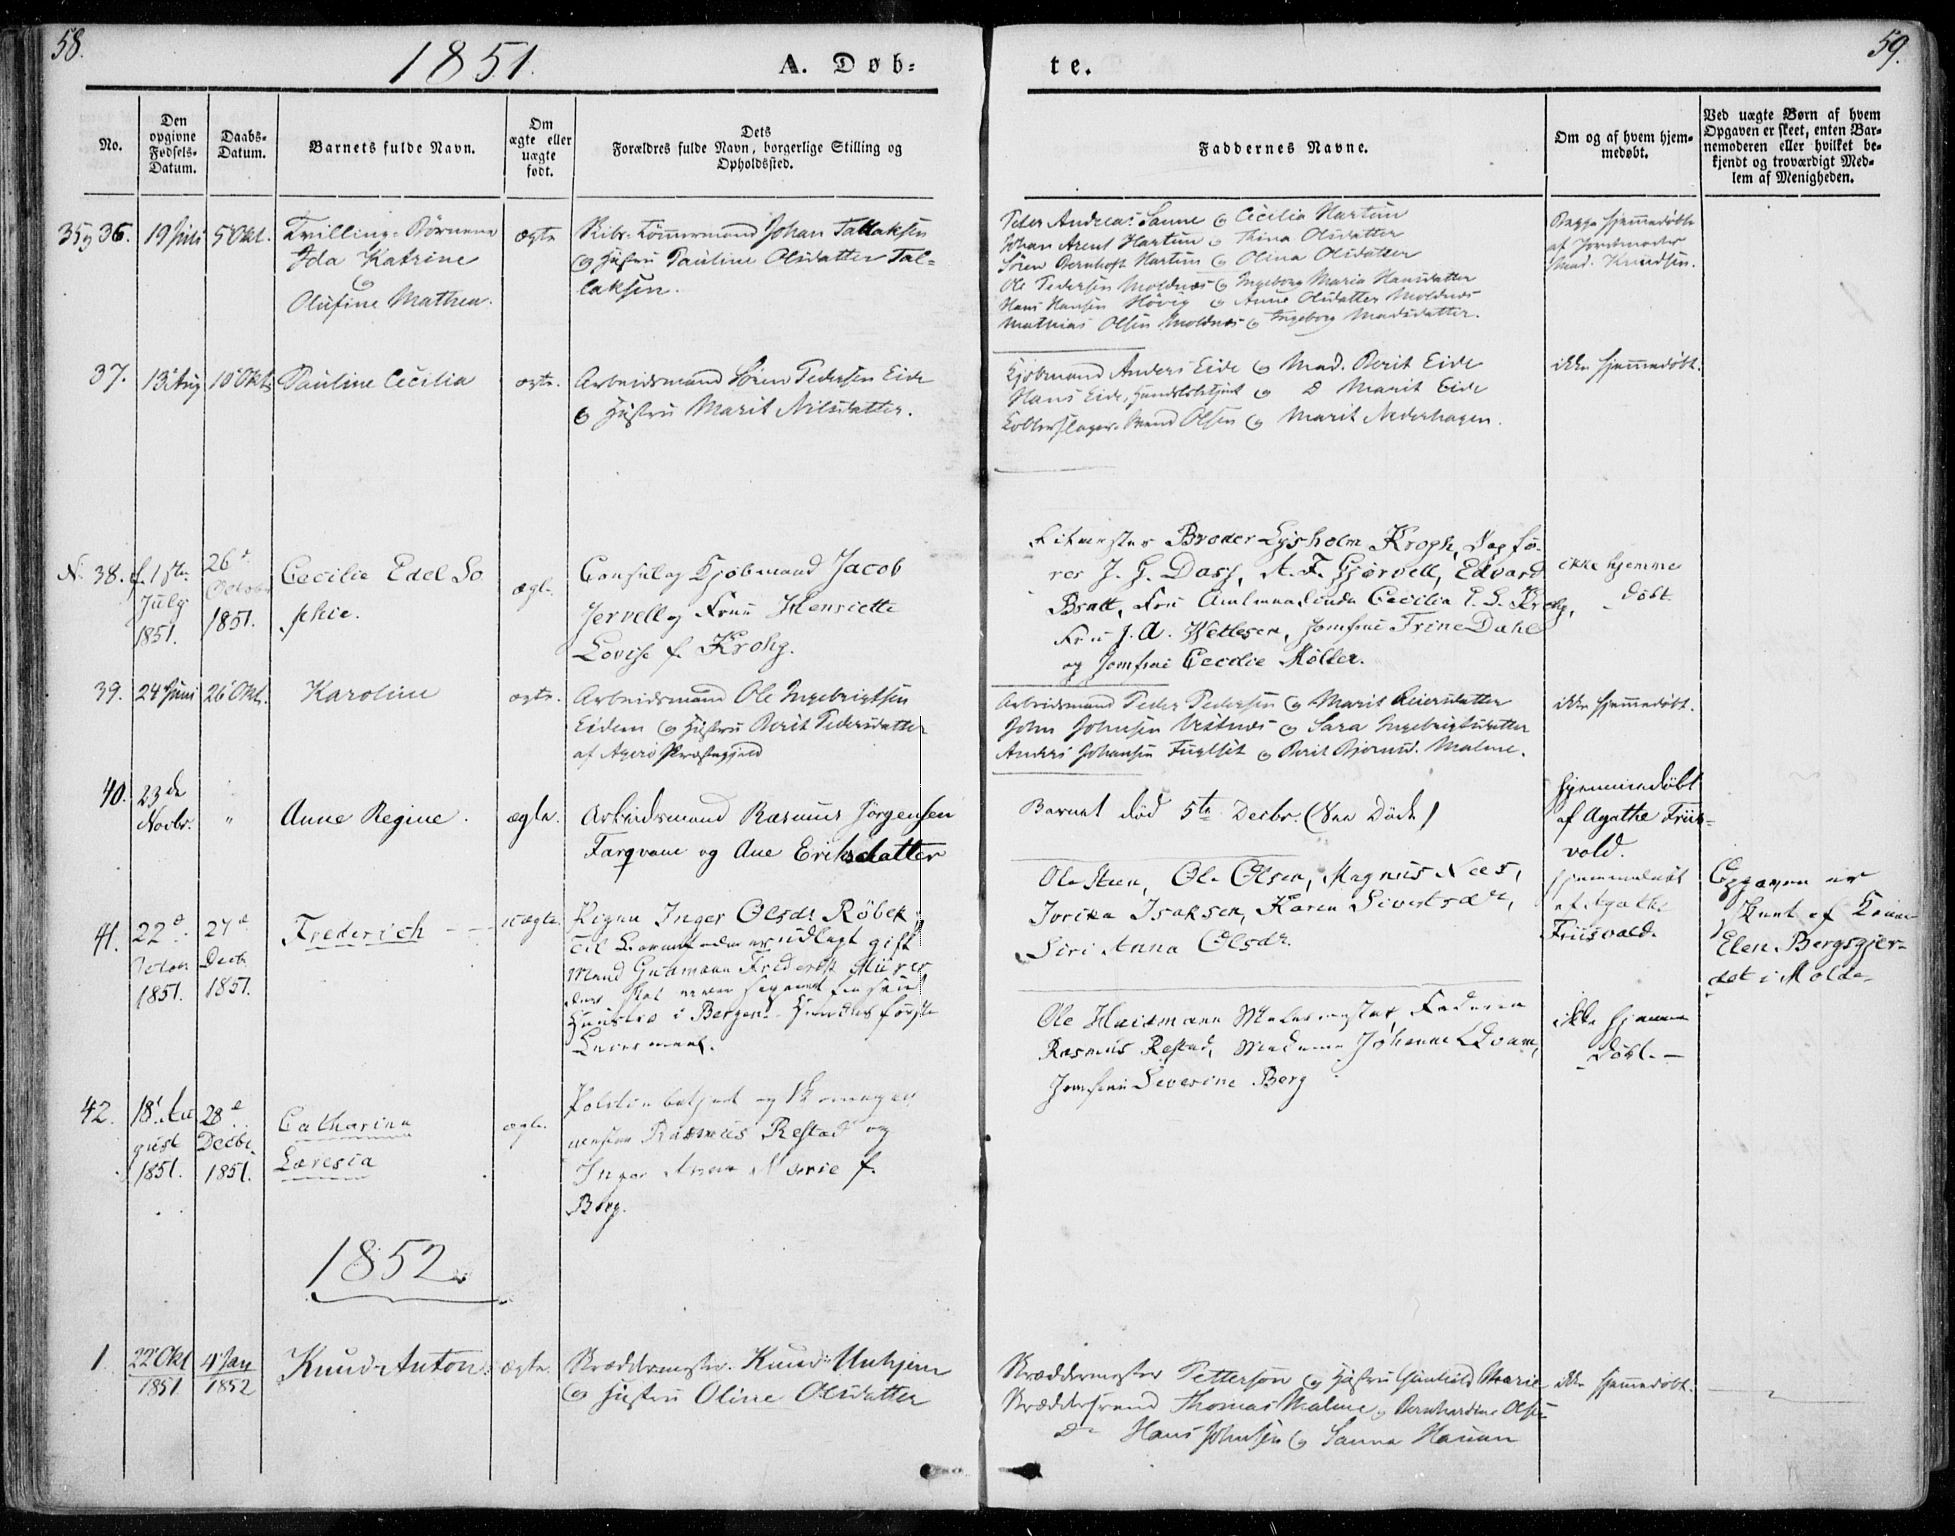 58.
1851.
A. Døb-
te.
59.
No.
Den
opgivne
Fødsels-
Datum.
Daabs-
Datum.
Barnets fulde Navn.
Om
ægte eller
uægte
født.
Dets
Forældres fulde Navn, borgerlige Stilling og
Opholdssted.
Faddernes Navne.
Om og af hvem hjem-
medøbt.
Ved uægte Børn af hvem
Opgaven er skeet, enten Bar-
nemoderen eller hvilket be-
kjendt og troværdigt Med-
lem af Menigheden.
35 36. 19 Juli 5 Okt. Tvilling-Børnene
Ida Katrine
&
Olufine Mathea.
ægte
Tømmermand Johan Tallaksen
& Hustru Pauline Olsdatter Tal-
laksen.
Peder Andreas Sanne & Cicilia Hartun
Johan Arent Hartun & Thina Olsdatter
Søren Bernhoft Hartun & Olina Olsdatter
Ole Pedersen Moldnæs & Ingeborg Maria Hansdatter
Hans Hansen Høvig & Anne Olsdatter Moldnæs
Mathias Olsen Moldnæs & Ingeborg Madsdatter.
Begge hjemmedøbte
af Jordmoder
Mad. Knudsen.
37. 13 Aug 10 Okt Pauline Cecilia
ægte.
Arbeidsmand Søren Pedersen Eide
& Hustru Marit Nilsdatter.
Kjøbmand Anders Eide & Mad. Berit Eide
Hans Eide, & D Marit Eide
Kobberslager Olsen & Marit Nederhagen.
ikke hjemmedøbt.
N. 38. f. 1ste
July
1851.
26d
October
1851.
Cecilie Edel So
phie.
ægte.
Consul og Kjøbmand Jacob
Jervell og Frue Henriette
Lovise f. Krohg.
Broder Lysholm Krogh, Sagfø-
rer J. G. Dass, A. F. Gjørvell, Edvard
Bratt, Fru Cecilia Krohg,
Fru J. A. Wettesen, Jomfrue Trine Dahl
og Jomfrue Cecilie Møller.
ikke hjemme
døbt.
39. 24 Juni 26 Okt. Karoline
ægte.
Arbeidsmand Ole Ingebrigtsen
Eidem & Hustru Berit Pedersdatter
af Agerø Præstegjeld
Arbeidsmand Peder Pedersen & Marit Reiersdatter
John Johnsen Vestnæs & Sara Ingebrigtsdatter
Anders Johansen Fuglset & Berit Bjørnsd. Malme.
ikke hjemmedøbt.
40. 23de
Novbr.
"
Anne Regine.
ægte.
Arbeidsmand Rasmus Jørgensen
Farqvam og Ane Eriksdatter
Barnet død 5te Decbr. (See Døde)
hjemmedøbt
af Agathe Friis-
vold.
41. 22d
October
1851.
27d
Decb
1851.
Frederich
uægte.
Pigen Inger Olsdr Røbek
til Barnefader er udlagt gift
Mand Gutmann Frederik Mürer
Hustro i Bergen. Hendes første
Leiermaal.
Ole Steen, Ole Olsen, Magnus Nees,
Jorika Isaksen, Karen Sivertsdr,
Siri Anna Olsdr.
hjemmedøbt
af Agathe
Friisvold.
Opgaven er
skeet af Kone
Elen Bergsgjer-
det i Molde
42. 18 Au
gust
1851.
28d
Decbr.
1851.
Catharina
Laresia
ægte.
Politiebetjent og Skomager
mester Rasmus Restad og
Inger Anna Marie f.
Berg.
Ole Hausmann Malermester Faderen
Rasmus Restad, Madame Johanne
Jomfrue Severine Berg
ikke hjemme
døbt.
1852
1. 22 Okt
1851
4 Jan
1852
Knud Anton.
ægte.
Skræddermester Knud Unhjem
& Hustru Oline Olsdatter
Skræddermester Petterson & Hustru Gunhild Marie
Skræddersvend Thomas Malme & Bernhardine Olsen
D Hans Johnsen & Sanna Hauan
ikke hjemmedøbt.